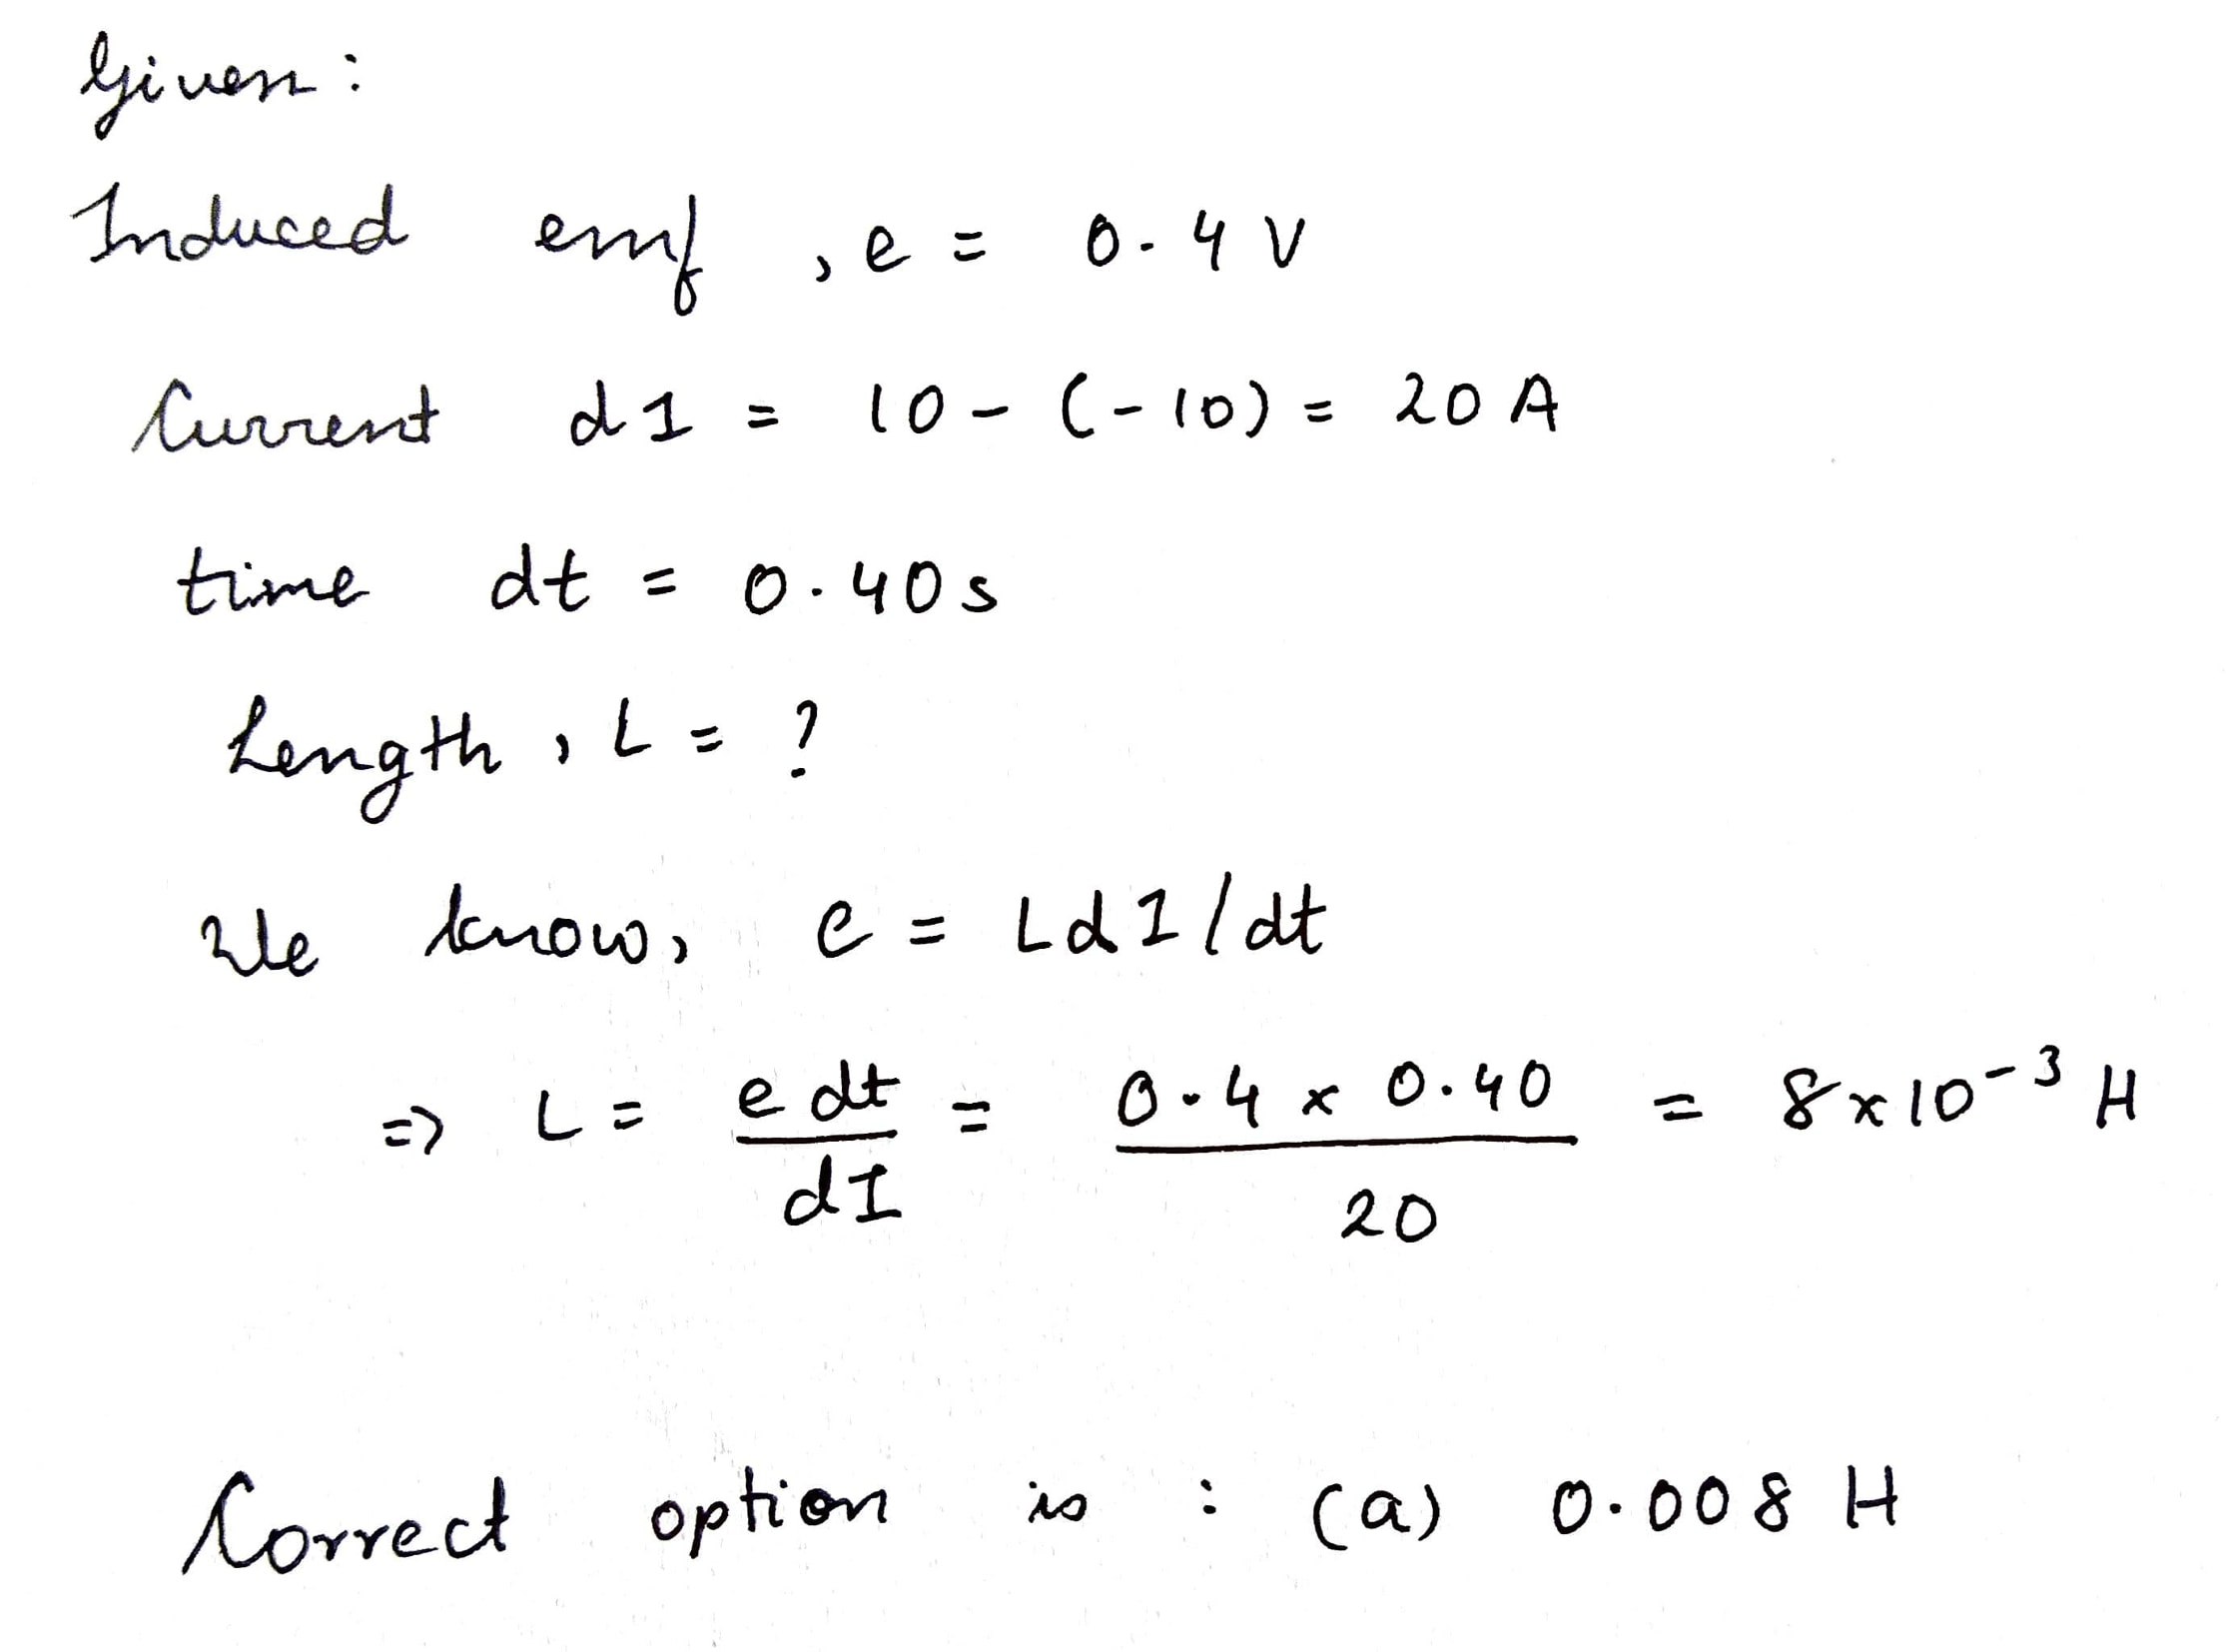 Given :
Induced emf , e = 0.4 V
Current dI = 10 - (-10) = 20 A
time dt = 0.40 s
Length , L = ?
We know, e = LdI/dt
=> L = e dt / dI = 0.4 x 0.40 / 20 = 8 x 10^-3 H
Correct option is : (a) 0.008 H